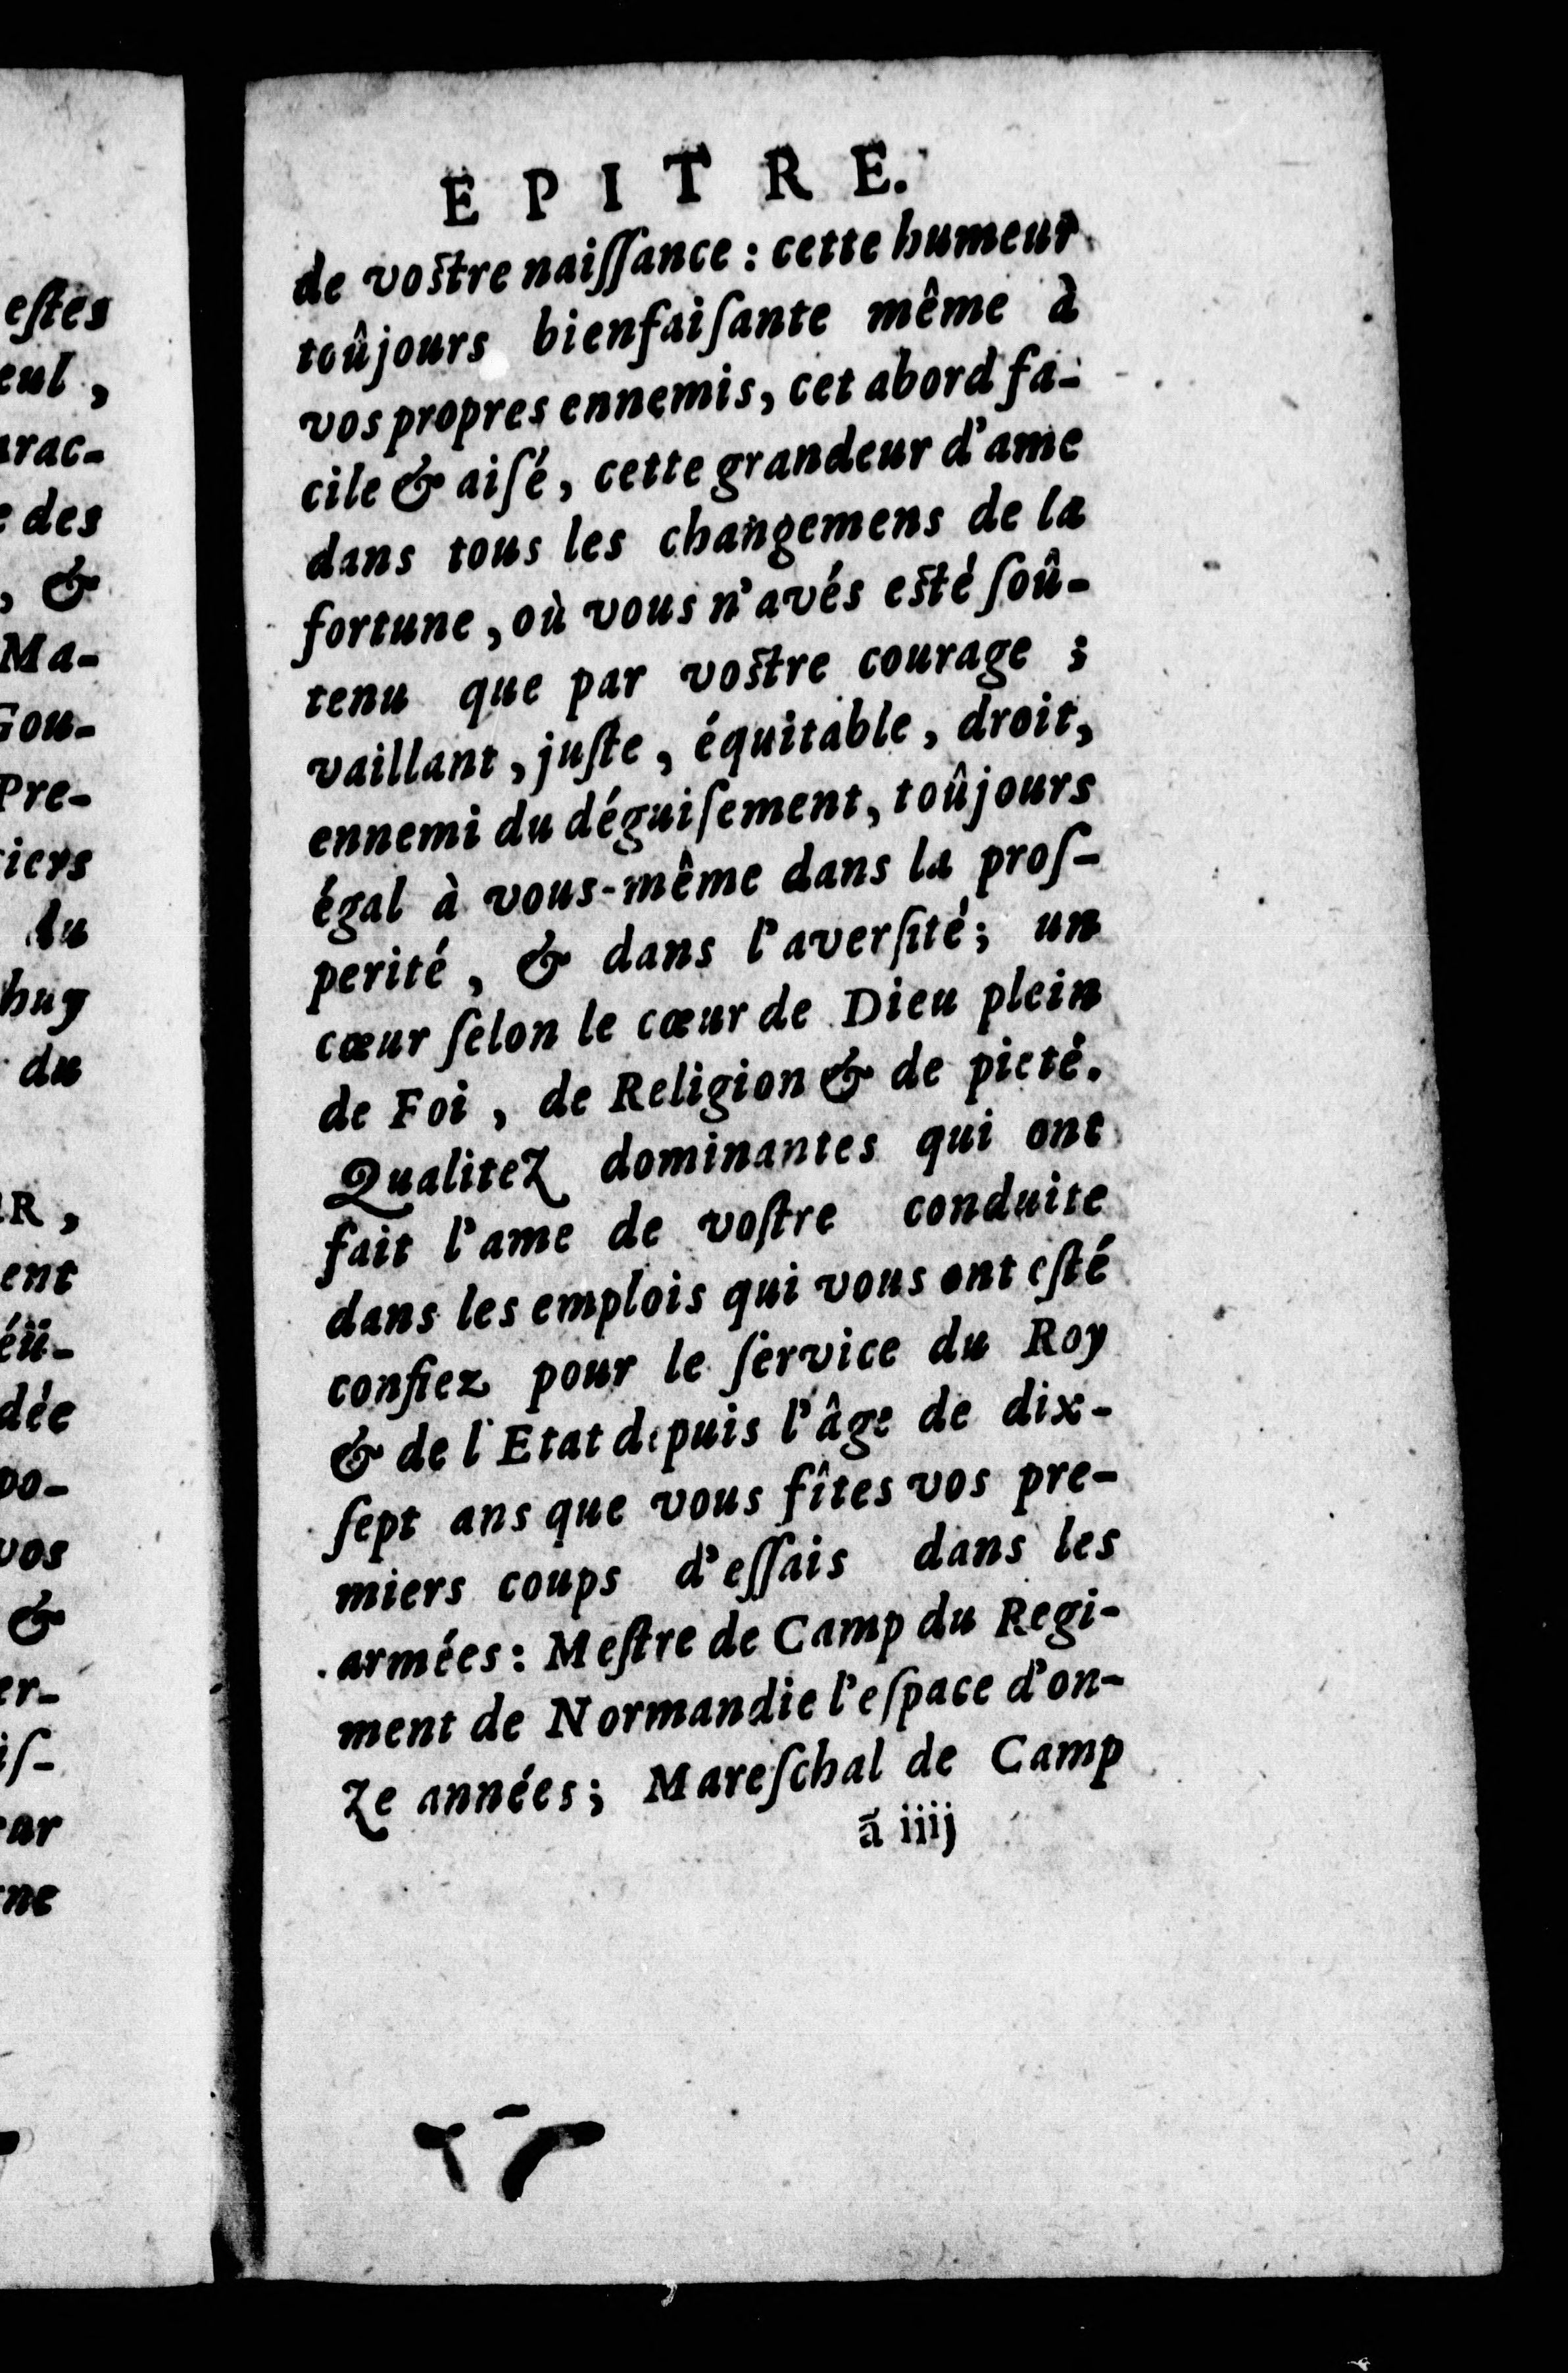 EPITRE.
de voſtre naiſſance : cette humeur
toûjours bienfaiſante même à
vos propres ennemis, cet abord fa-
cile & aiſé, cette grandeur d'ame
dans tous les changemens de la
fortune, où vous n'avés eſté ſoû-
tenu que par voſtre courage ;
vaillant, juſte, équitable, droit,
ennemi du déguiſement, toûjours
égal à vous-même dans la proſ-
perité, & dans l'averſité; un
cœur ſelon le cœur de Dieu plein
de Foi, de Religion & de pieté.
Qualitez dominantes qui ont
fait l'ame de voſtre conduite
dans les emplois qui vous ont eſté
confiez pour le ſervice du Roy
& de l'Etat depuis l'âge de dix-
ſept ans que vous fîtes vos pre-
miers coups d'eſſais dans les
armées : Meſtre de Camp du Regi-
ment de Normandie l'eſpace d'on-
ze années; Mareſchal de Camp
ã iiij